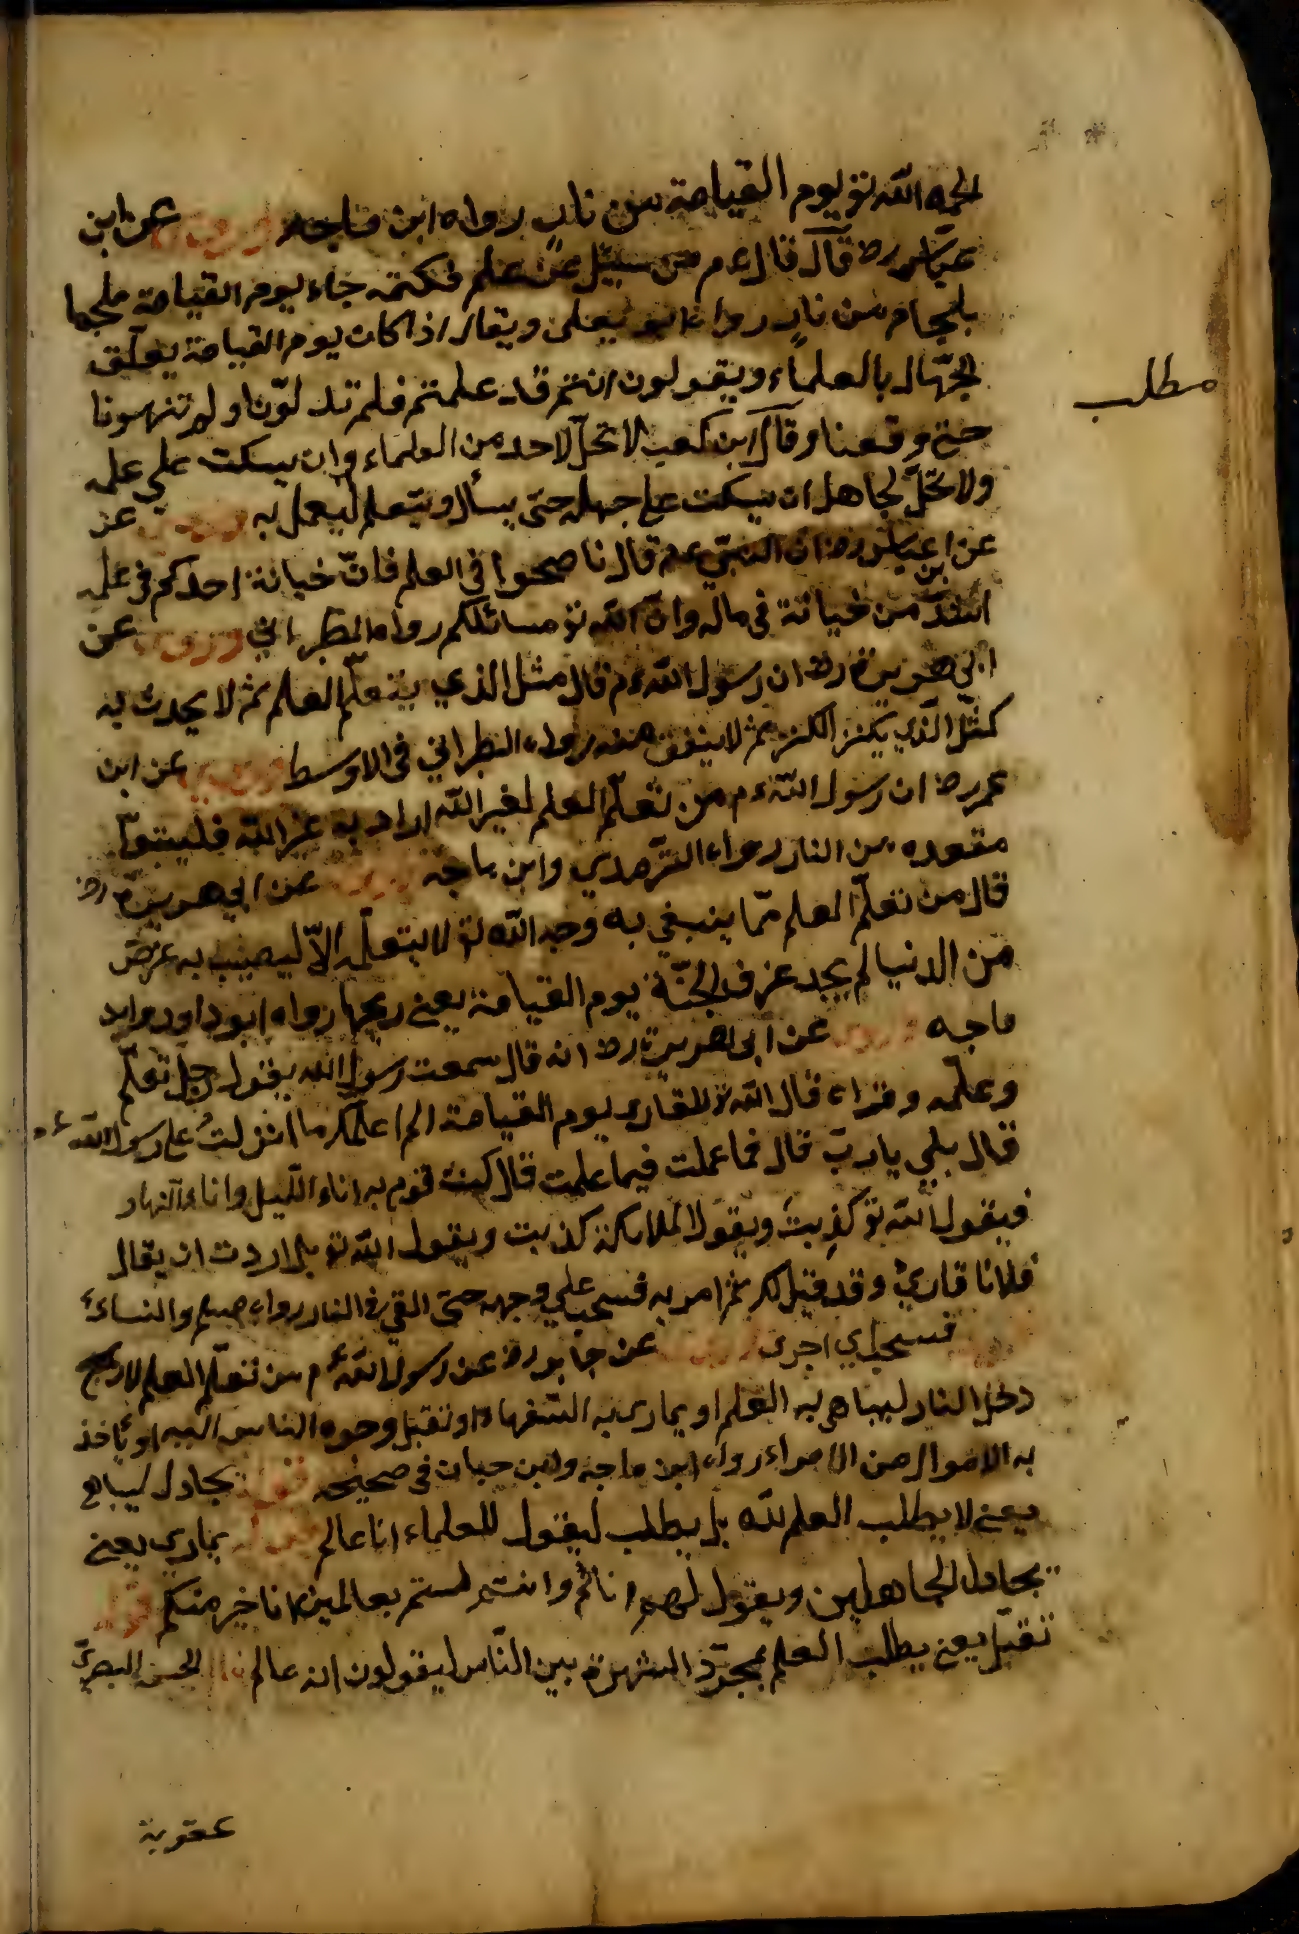 الجمه الله تع يوم القيامة من نار رواه ابن ماجه وروى عن ابن
عباس رض قال قال عم من سئيل عن علم فكتمه جاء يوم القيامة ملجما
بلجام من نار رواه ابو يعلى ويقال اذا كان يوم القيامة يعلّق
الجهّال بالعلماء ويقولون انتم قد علمتم فلم تدلّونا ولم تنهونا
مطلب
حتى وقعنا وقال ابن كعب لا تحلّ لاحد من العلماء وان يسكت على علمه
ولا تحلّ لجاهل ان يسكت على جهله حتّى يسأل ويتعلم ليعمل به عن
عن ابن عباس رض ان النبي عم قال ناصحوا في العلم فانّ خيانة احدكم في علمه
اشدّ من خيانة في ماله وان الله تع مسائلكم رواه الطبراني وروى عن
ابى هريرة رض ان رسول الله عم قال مثل الذي يتعلّم العلم ثم لا يحدث به
كمثل الّذي يكنز الكنز ثم لا ينفق منه رواه الطبراني في الاوسط عن ابن
عمر رض ان رسول الله عم من تعلّم العلم لغير الله اراد به غير الله فليتبوّأ
مقعده من النار رواه الترمدي وابن ماجه عن ابي هريرة رض
قال من تعلّم العلم ممّا ينبغي به وجه الله تع لا يتعلّمه الّا ليصيب به عرض
من الدنيا لم يجد عرف الجنّة يوم القيامة يعنى ريحها رواه ابو داود وابن
ماجه وروى عن ابى هريرة رض انه قال سمعت رسول الله يقول رجل تعلّم
وعلّمه وقراء قال الله تع للقارى يوم القيامة الم اعلّمكم ما انزلتُ على رسول الله عم
قال بلي يا ربّ قال فما عملت فيما علمت قال كنت اقوم به اناء اللّيل واناء النهار
فيقول الله تع كذبتَ ويقول الملائكة كذبت ويقول الله تع بل اردت ان يقال
فلانا قارئ وقد قيل لك ثم امر به فسحب على وجهه حتى القي في النار رواه مسلم والنساء
فسحب اي اجرى عن جابر رض عن رسول الله عم من تعلّم العلم
دخل النار ليباهي به العلم او يمارى به السّفهاء او تقبل وجوه الناس اليه او ياخذ
به الاموال من الامراء رواه ابن ماجه وابن حبان في صحيحه قوله يجادل ليباهي
يعنى لا يطلب العلم لله بل يطلب ليقول للعلماء انا عالم قوله يماري يعنى
يجادل الجاهلين ويقول لهم وانتم لستم بعالمين انا خير منكم قوله
تقبل يعنى يطلب العلم لمجرّد الشهرة بين النّاس ليقولون انه عالم قال الحسن البصريّ
عقوبة